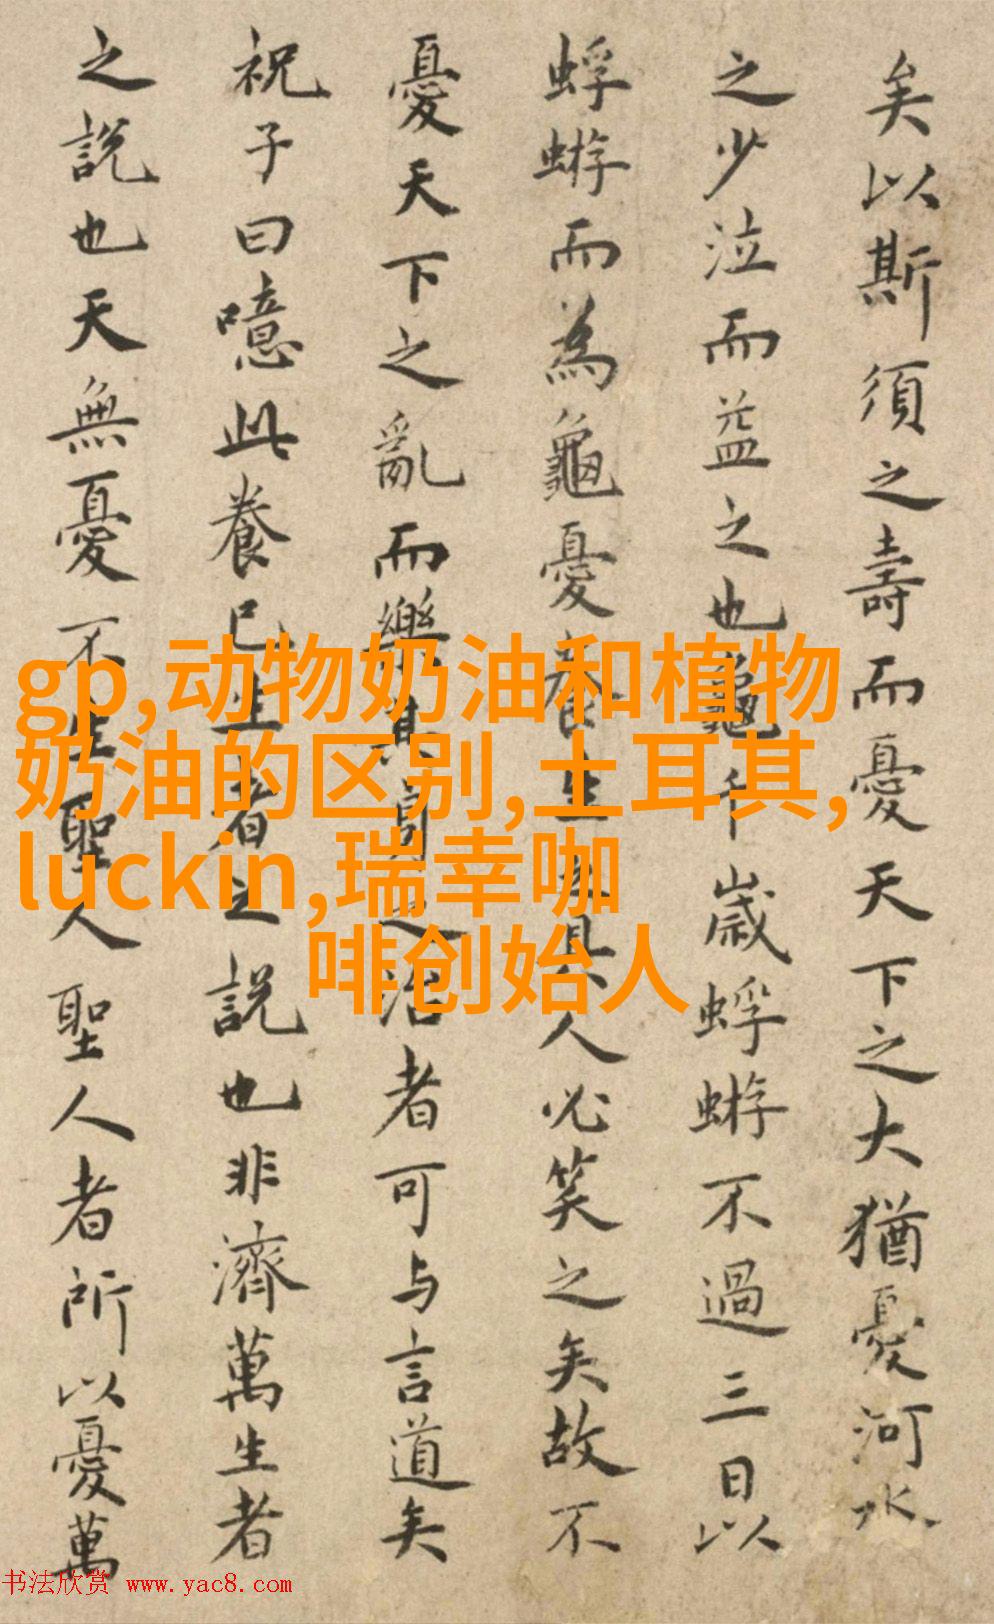 矣以斯須之壽而憂天下之大猶憂河水
之少泣而益之也龜千歲蜉蝣不過三日以
蜉蝣而為龜憂養生之具人必笑之矣故不
憂天下之亂而樂其身之治者可与言道矣
祝子曰噫此養已生者之説也非濟萬生者
之説也天無憂不生聖人聖人者所以憂萬
gp,动物奶油和植物
奶油的区别,土耳其,
luckin,瑞幸咖
啡创始人
书法欣赏 www.yac8.com